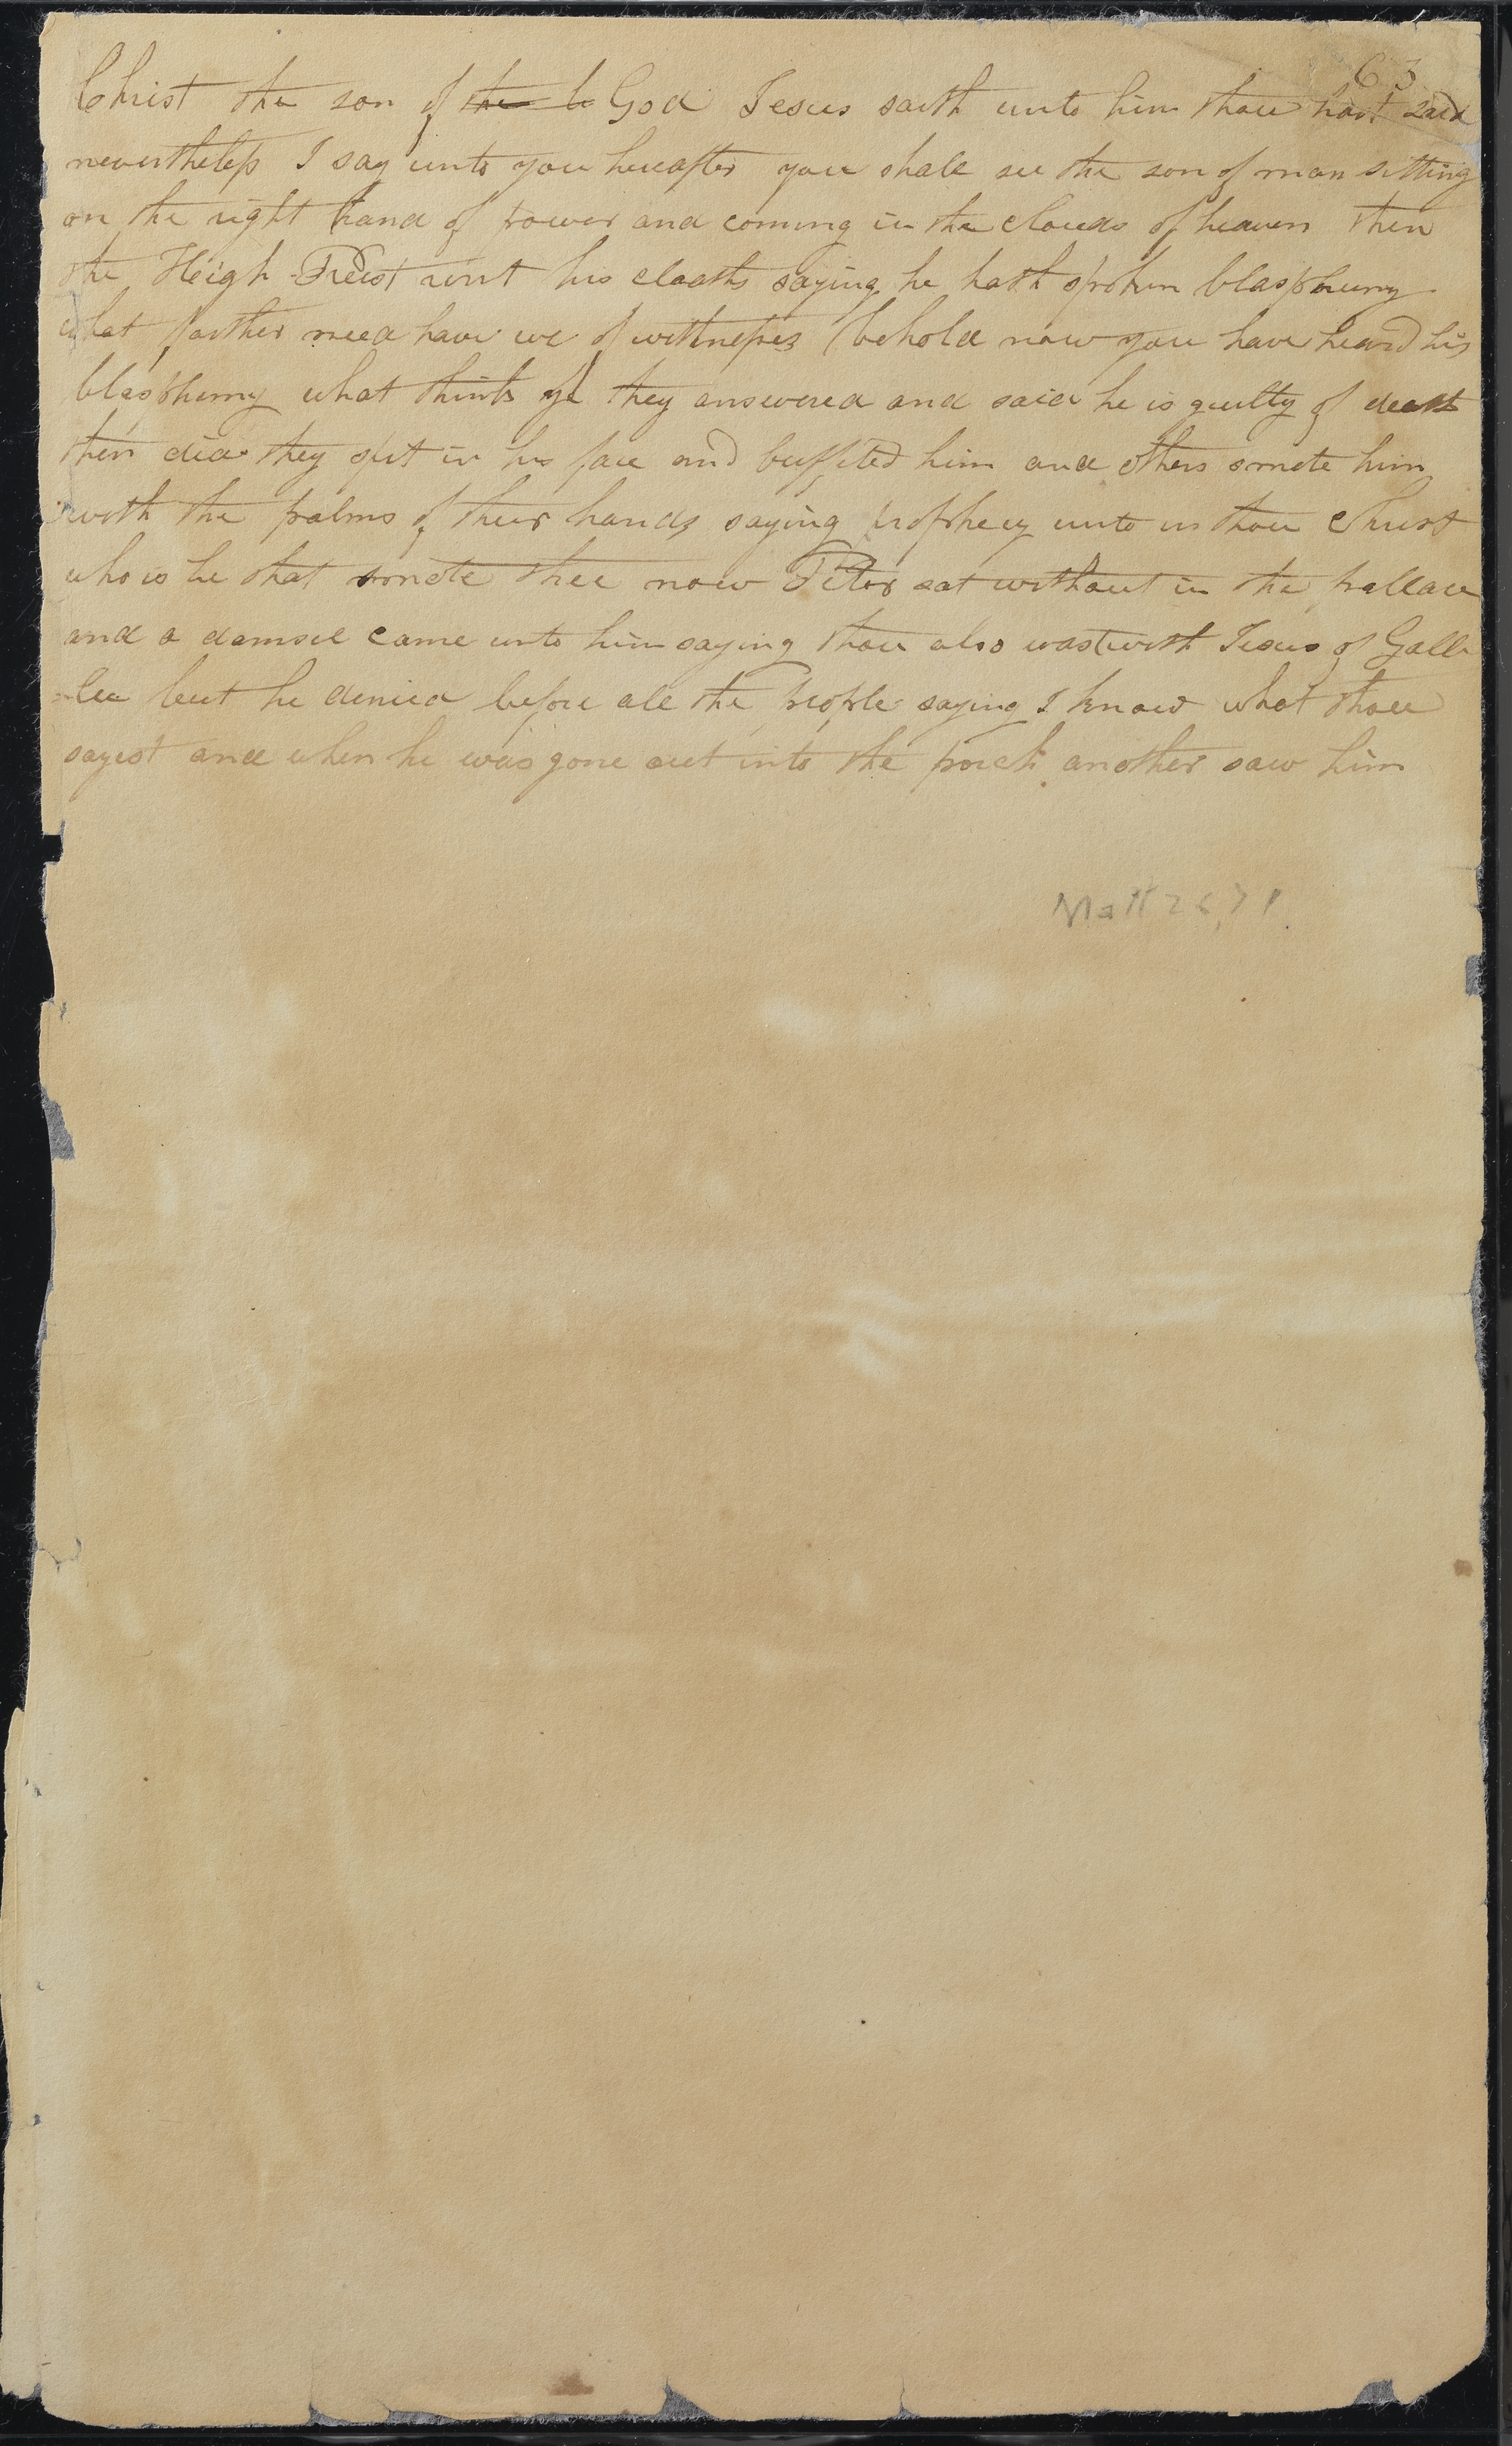 63
Christ the son of the l God Jesus saith unto him thou hast said
nevertheless I say unto you hereafter you shall see the son of man sitting
on the right hand of power and coming in the clouds of heaven then
the Heigh Preist rent his cloaths saying he hath spoken blasphemy
what farther need have we of wittnesses behold now you have heard his
blasphemy what think ye they answered and said he is guilty of death
then did they spit in his face and buffited him and others smote him
with the palms of their hands saying prophecy unto us thou Christ
who is he that smote thee now Peter sat without in the pallace
and a damsel came unto him saying thou also wast with Jesus of Galli
-lee but he denied before all the people saying I know what thou
sayest and when he was gone out into the porch another saw him
Matt 26,71